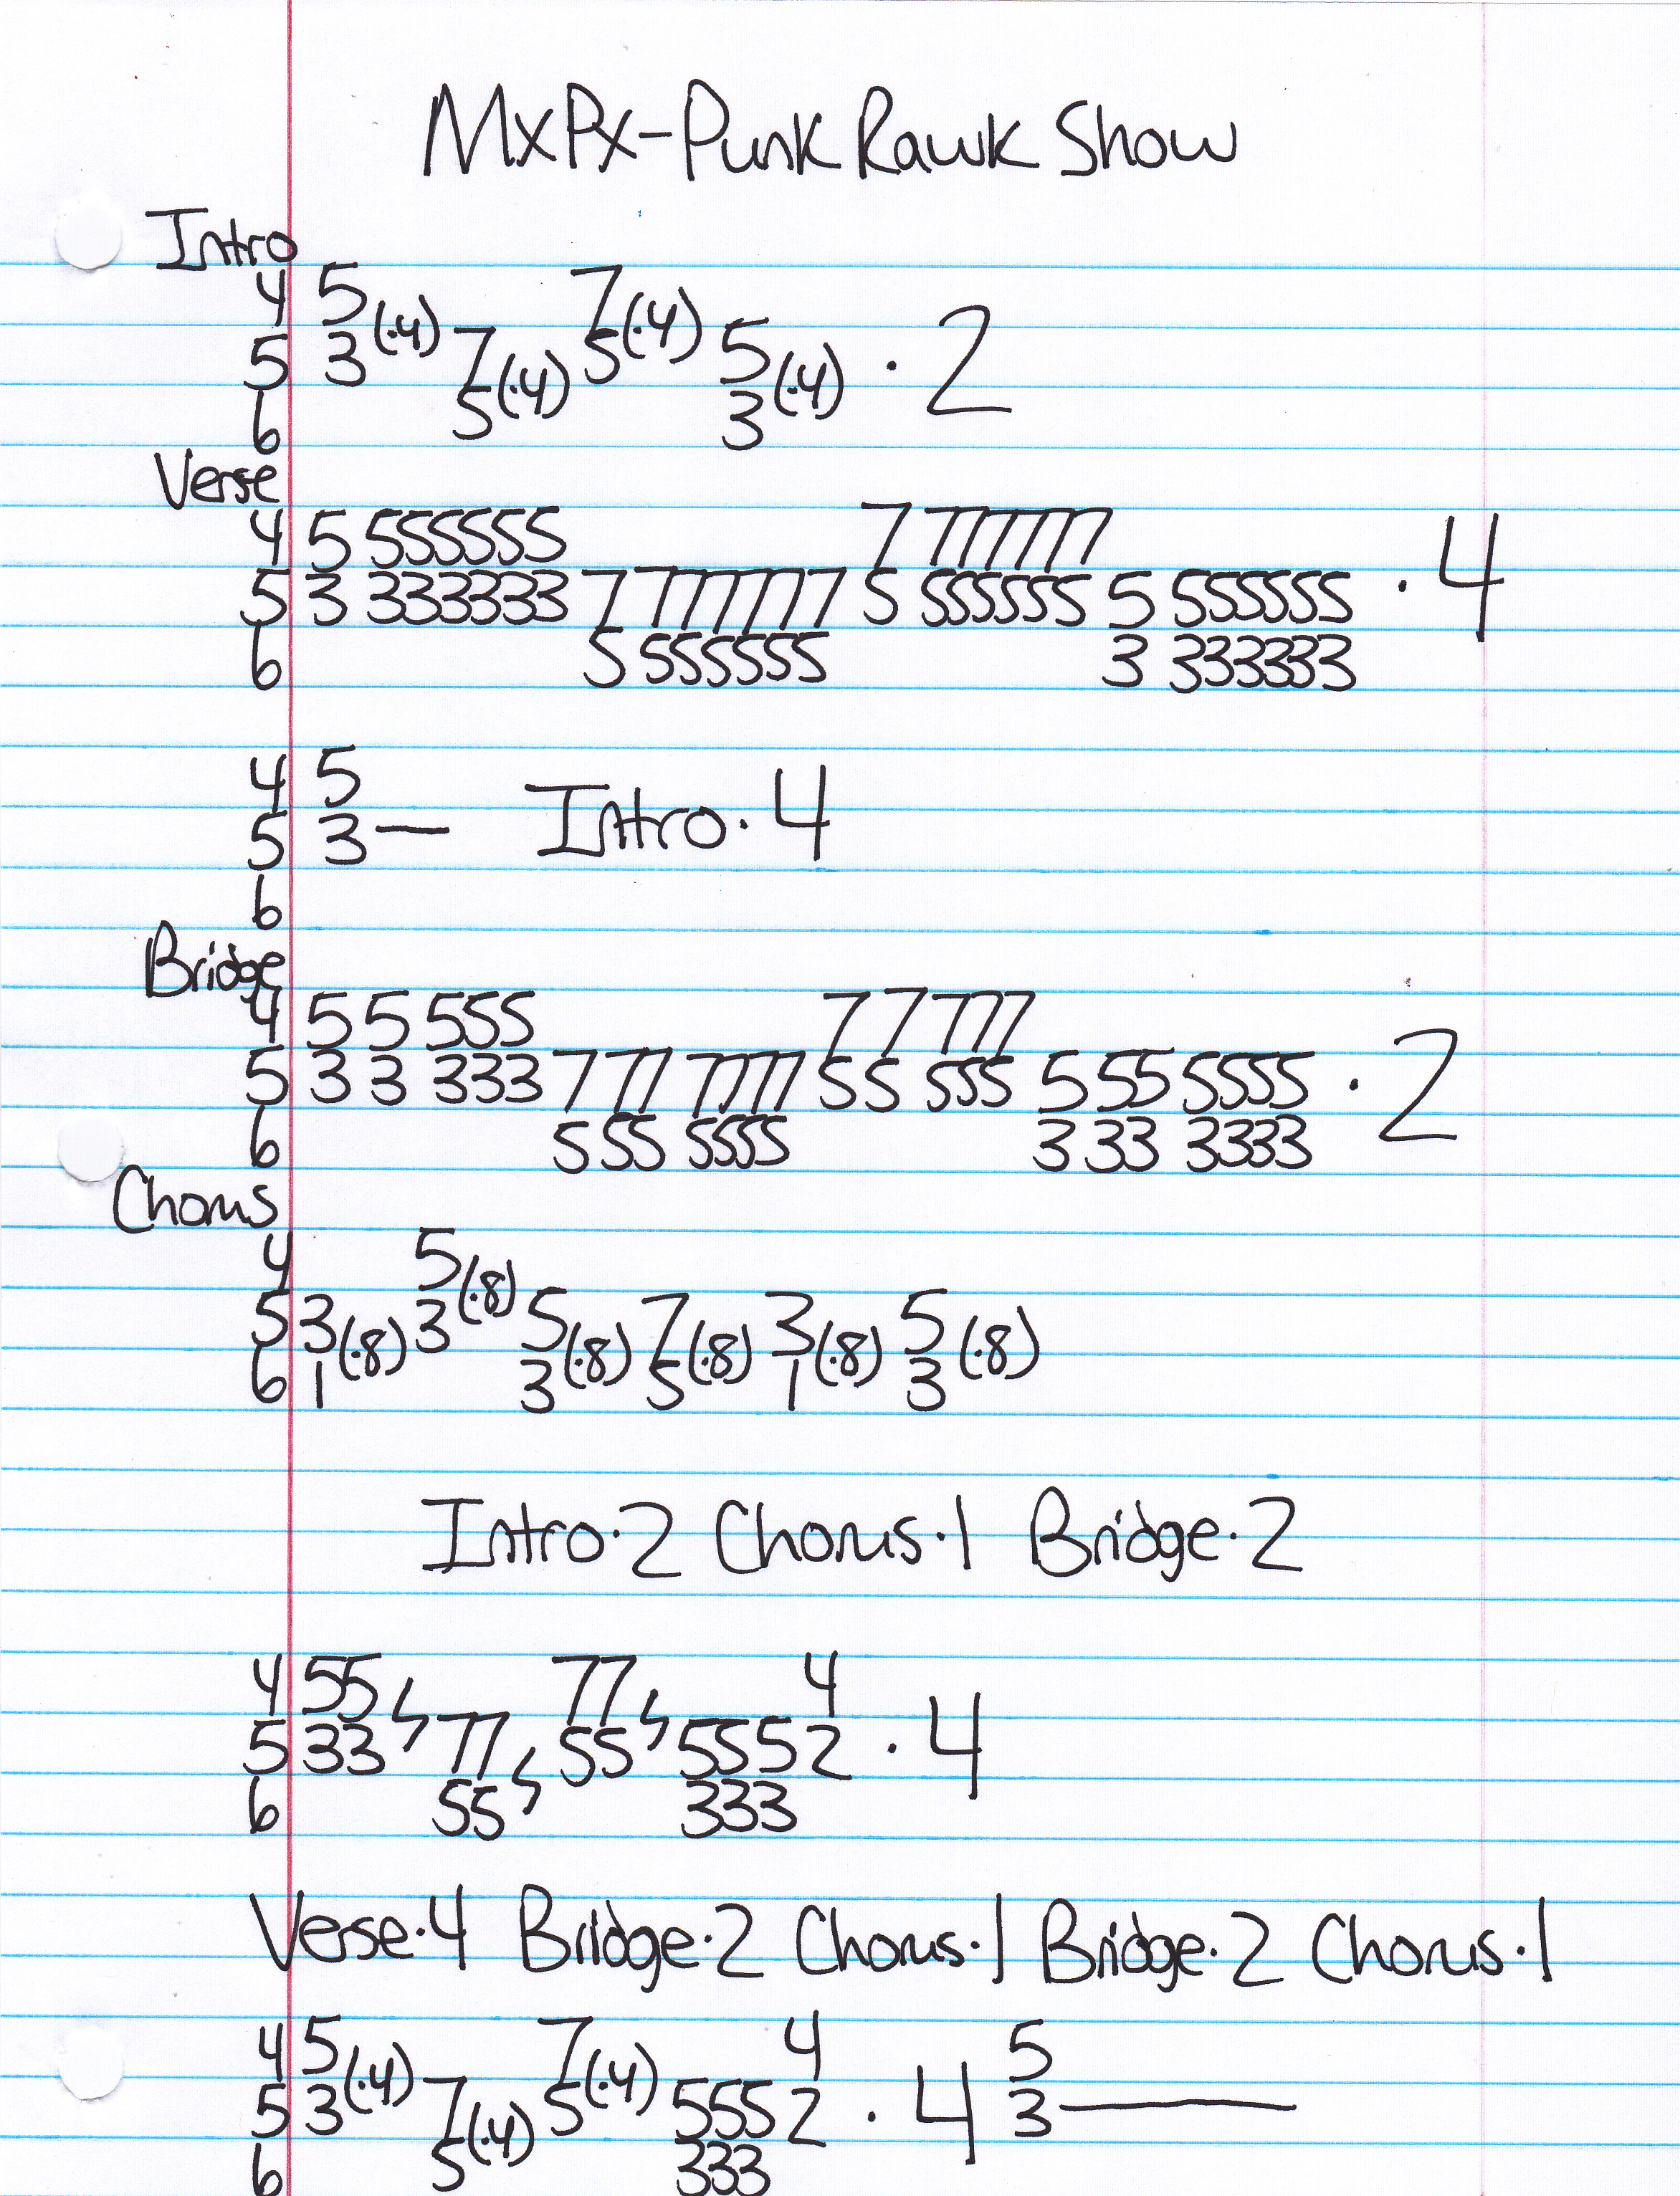 MxPx-Punk Rawk Show
Intro
4 5(·4) 7(·4)
5 3 7(·4) 5 5(·4) · 2
6 5 3
Verse
4 5 555555 7 777777
5 3 333333 7 777777 5 555555 5 555555 · 4
6 5 555555 3 333333
4 5
5 3— Intro·4
6
Bridge
4 5 5 555 7 7 777
5 3 3 333 7 77 7777 5 5 555 5 55 5555 · 2
6 5 55 5555 3 33 3333
Chorus
4 5(·8)
5 3(·8) 3 5(·8) 7(·8) 3(·8) 5(·8)
6 1 3 5 1 3
Intro·2 Chorus·1 Bridge·2
4 55 77 4
5 33 77 55 555 2 · 4
6 55 333
Verse·4 Bridge·2 Chorus·1 Bridge·2 Chorus·1
4 5(·4) 7(·4) 4 5
5 3 7(·4) 5 555 2 · 4 3—
6 5 333